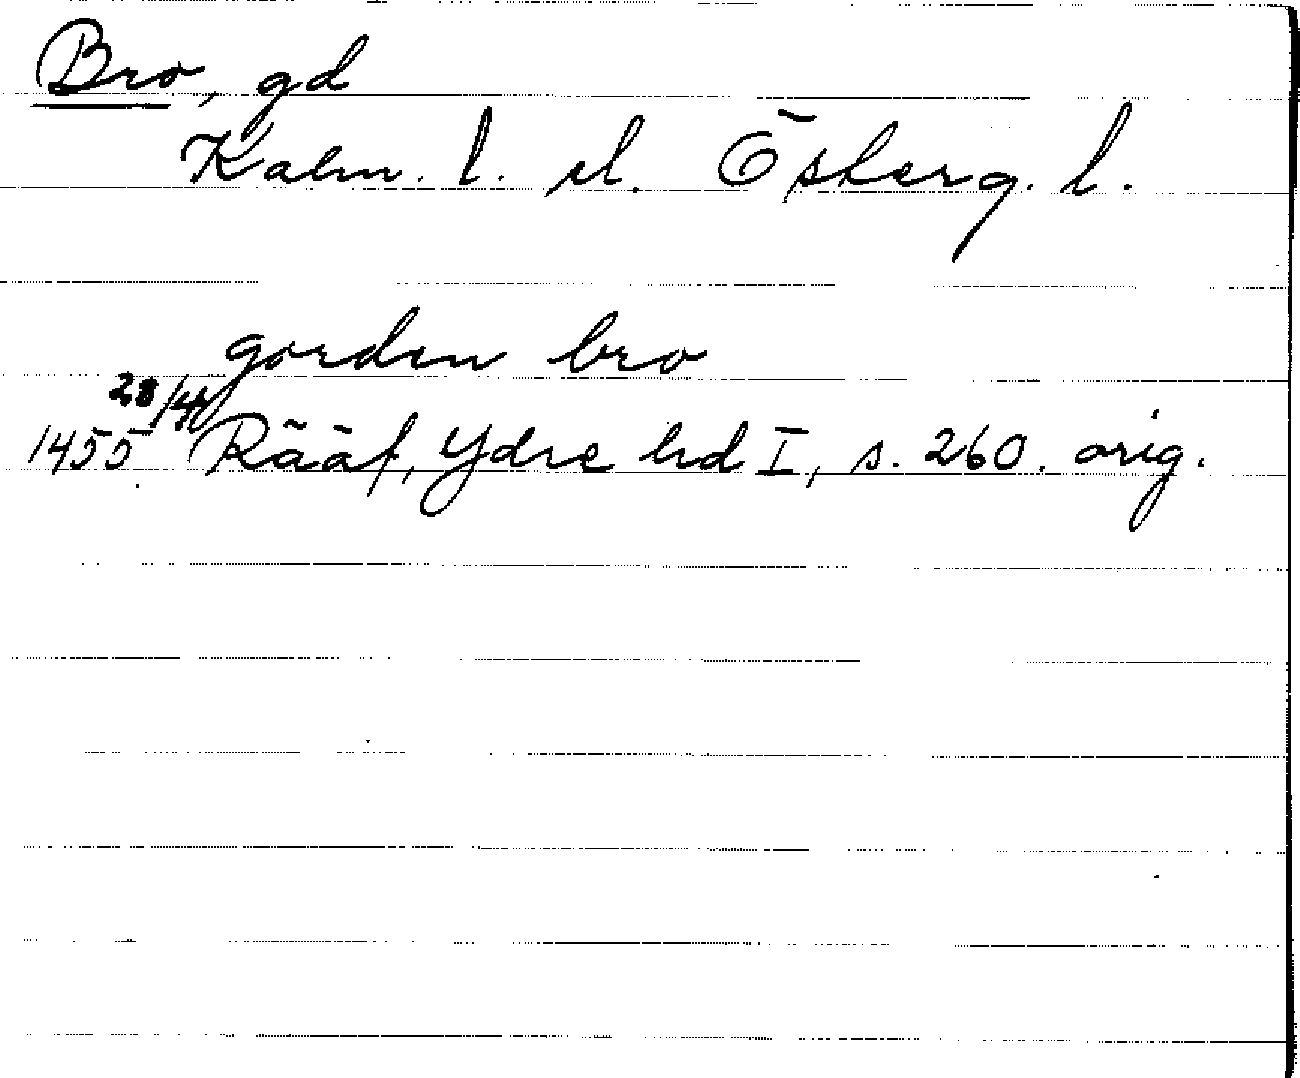 Bro, gd
Kalm. l. el. Österg. l.
gorden bro
1455 28/4 Rääf, Ydre hd I, s. 260. orig.